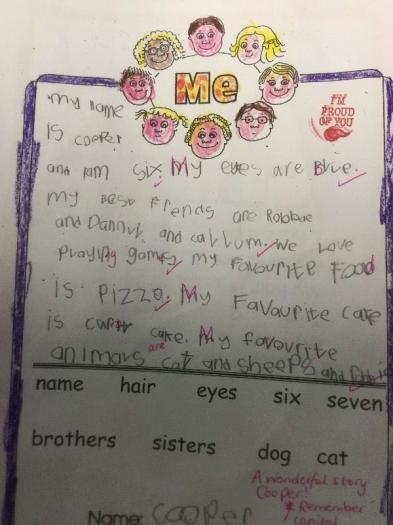 Me
I'M
PROUD
OF YOU
my name
is cooper
and iam six. My eyes are Blue.
my best friends are Robbie
and Danny and callum. we love
playing games. my favourite food
is Pizza. My Favourite cake
is carrot cake. My favourite
animals are cat and sheeps and
name hair eyes six seven
brothers sisters dog cat
A wonderful story
Cooper!
* Remember
capital
Name: cooper